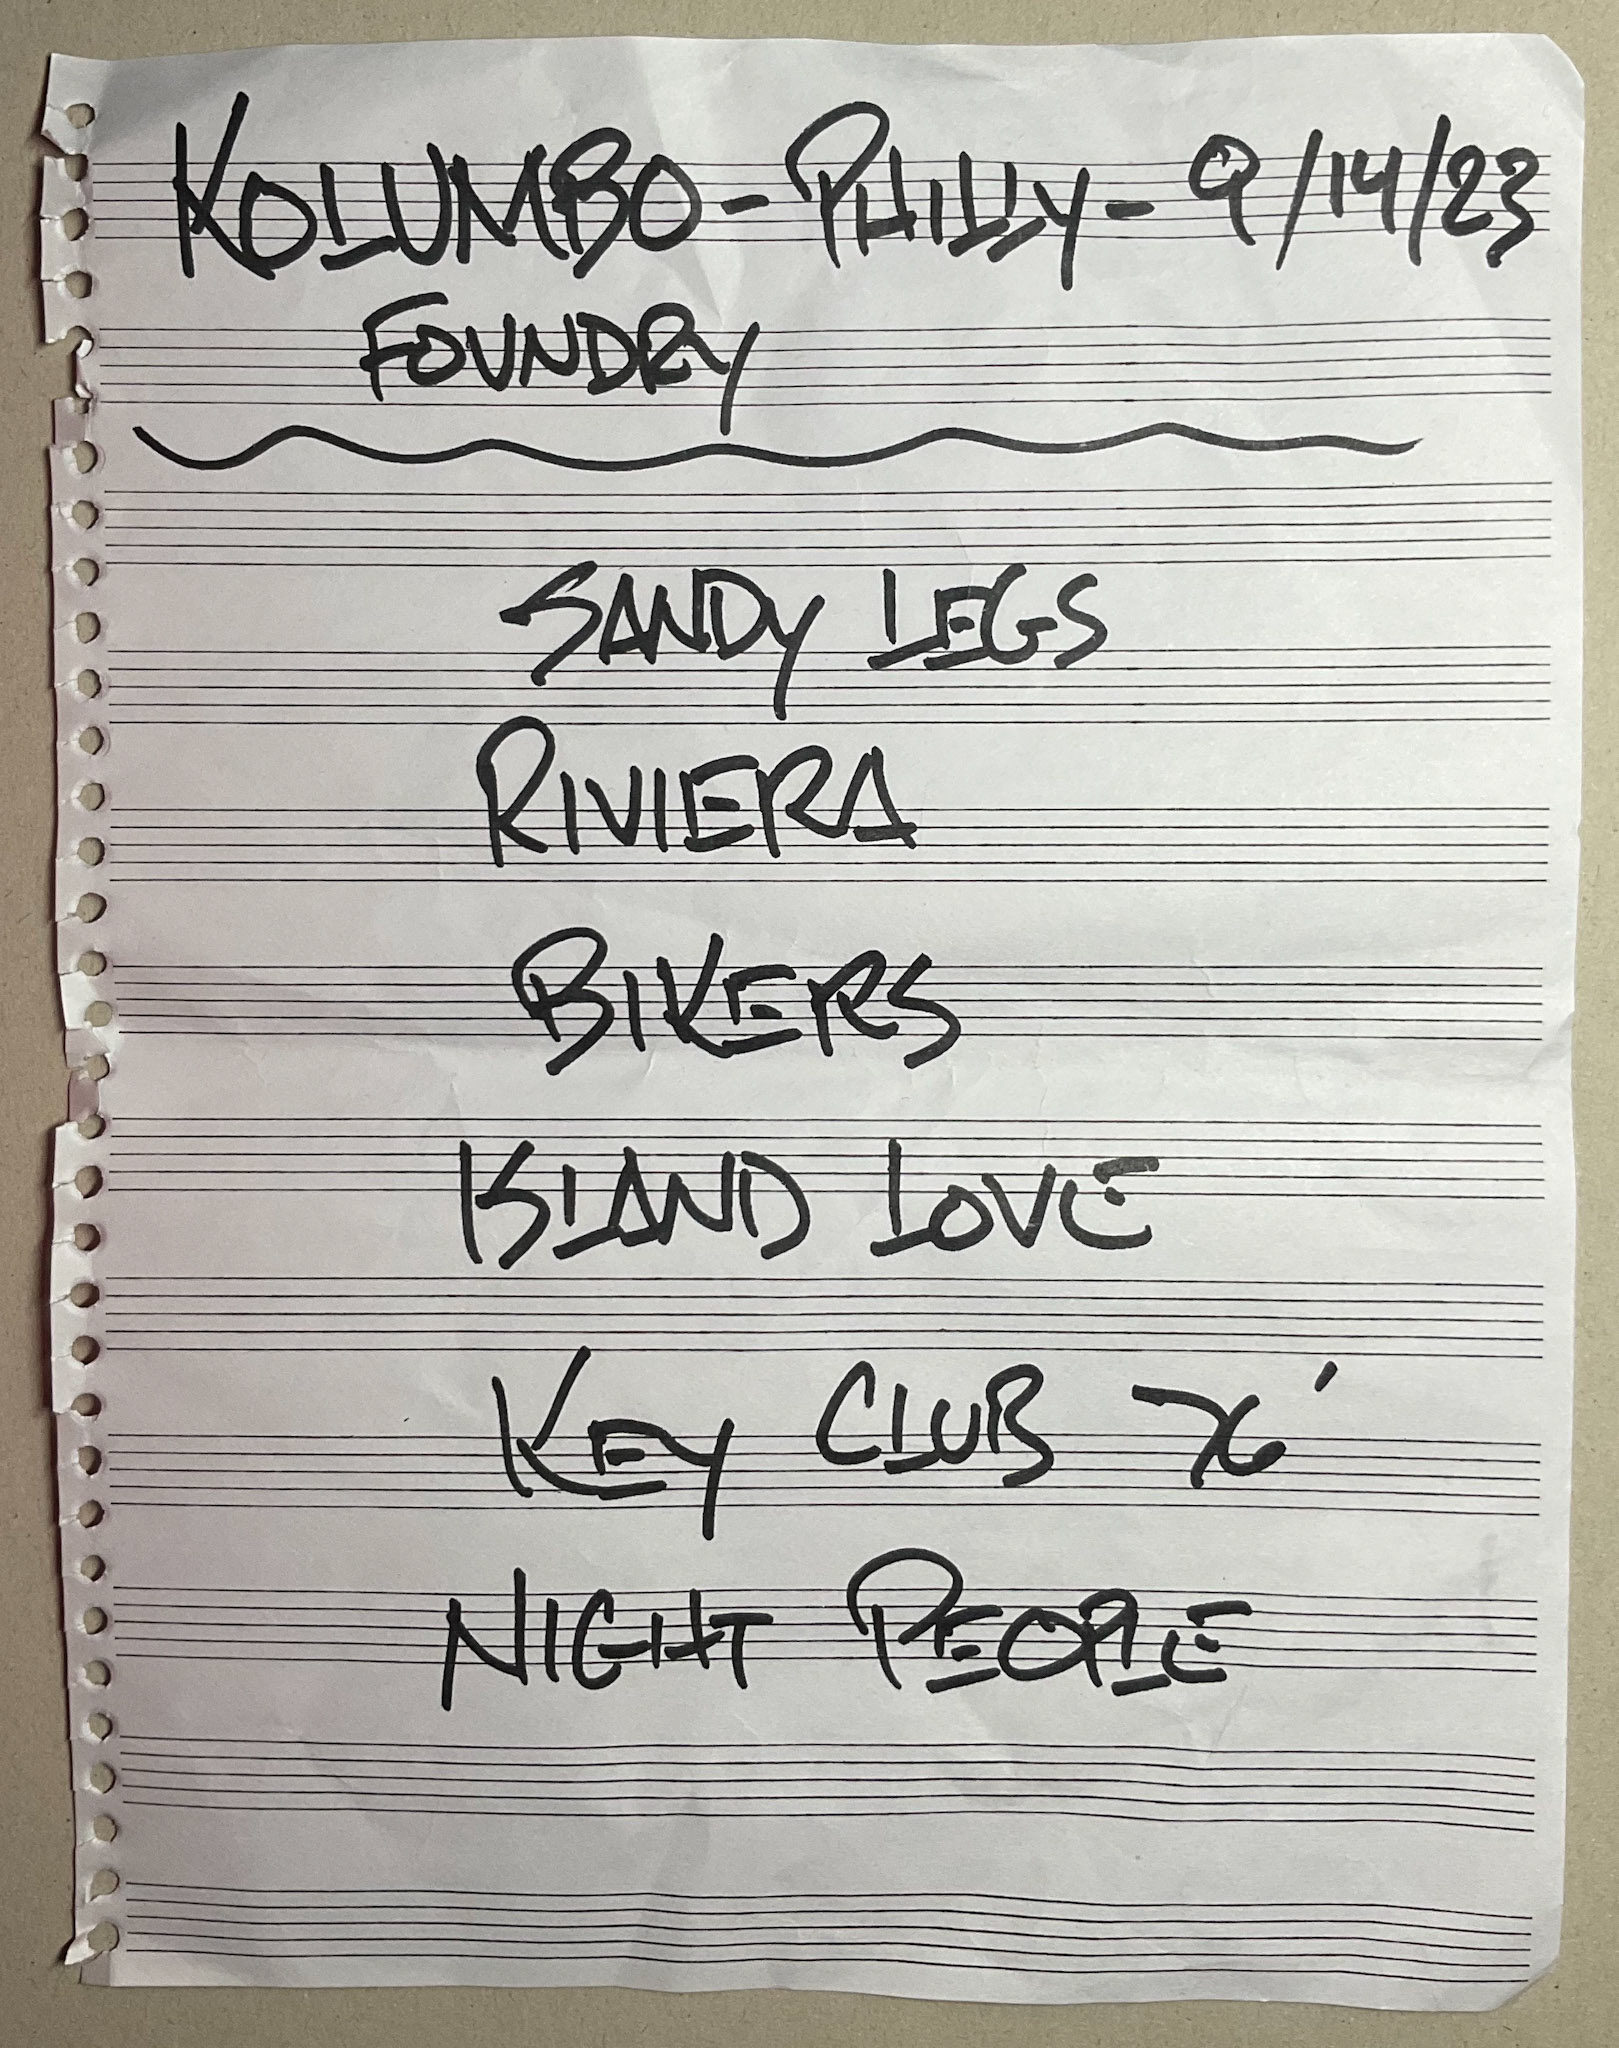 KOLUMBO - PHILLY - 9/14/23
FOUNDRY
SANDY LEGS
RIVIERA
BIKERS
ISLAND LOVE
KEY CLUB 76'
NIGHT PEOPLE